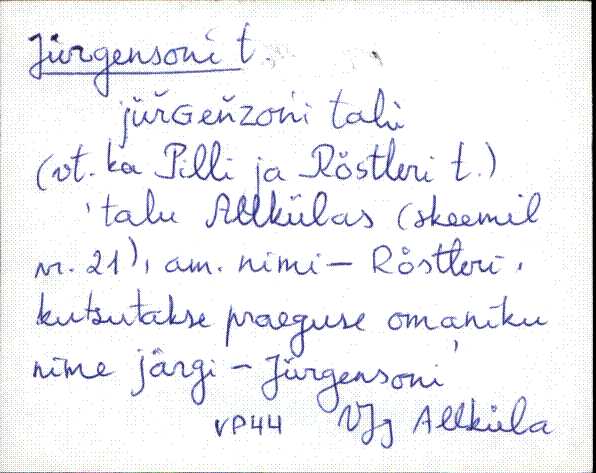 Jürgensoni t.
jürGeńzoni talu
(vt. ka Pilli ja Röstleri t.)
talu Allkülas (skeemil
nr. 21), am. nimi – Röstleri,
kutsutakse praeguse omaniku
nime järgi – Jürgensoni
VP44 VJg Allküla